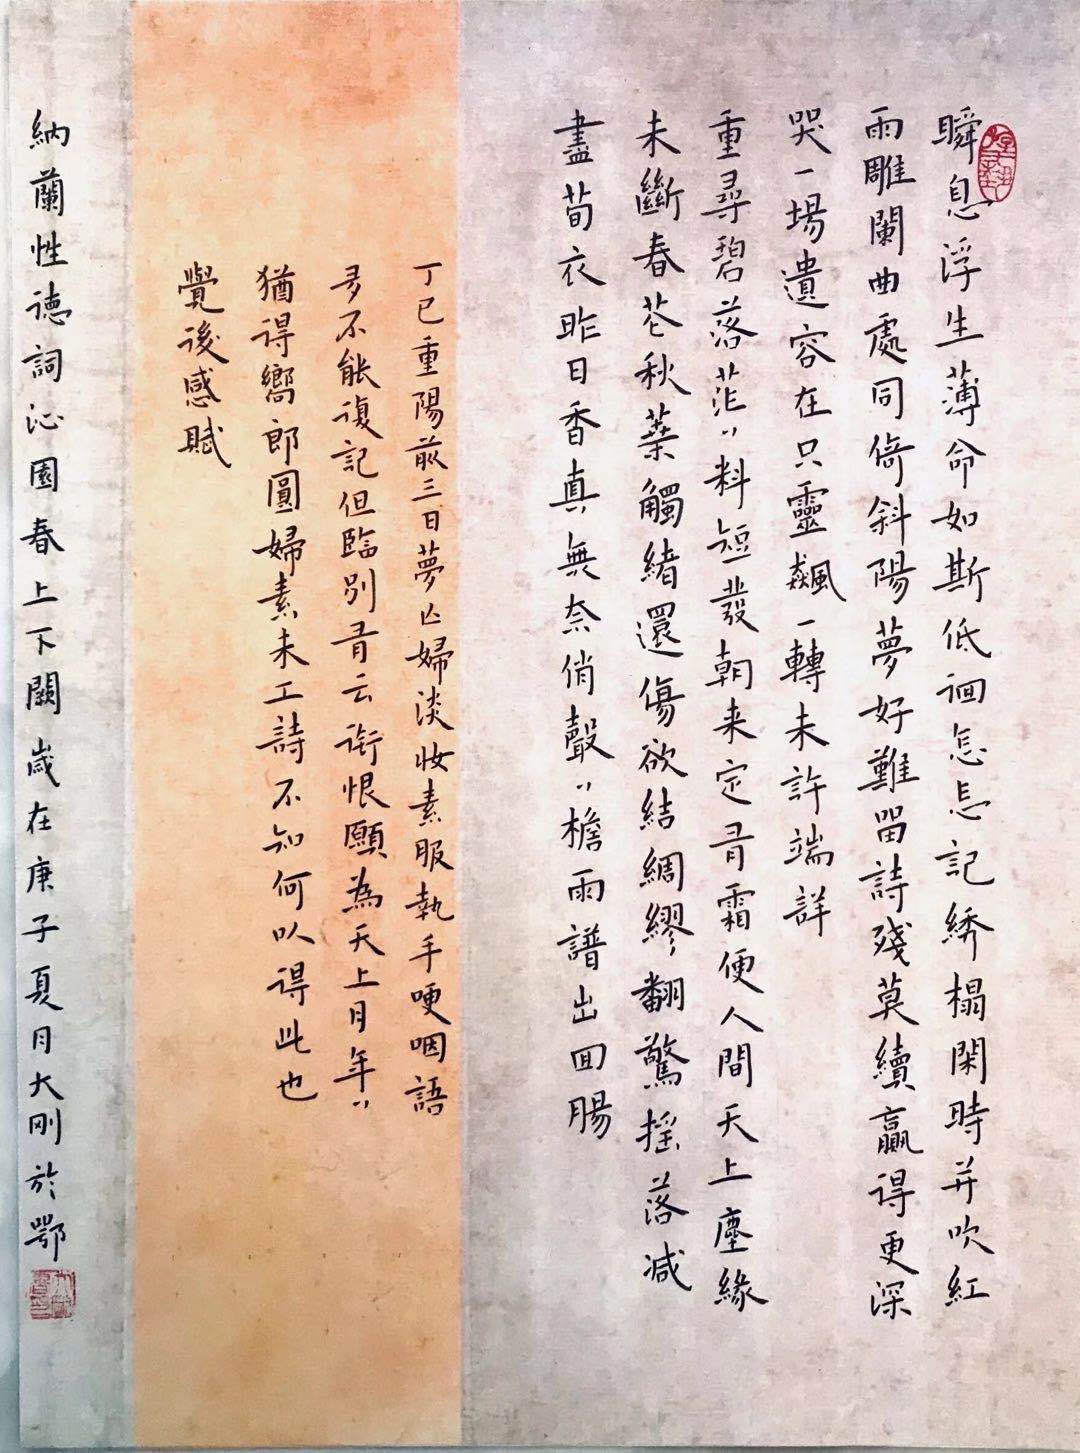 瞬息浮生薄命如斯低徊怎忘記綉榻閑時并吹紅
雨雕闌曲處同倚斜陽夢好難留詩殘莫續贏得更深
哭一場遺容在只靈飆一轉未許端詳
重尋碧落茫〻料短發朝来定有霜便人間天上塵緣
未斷春花秋葉觸緒還傷欲結綢繆翻驚摇落减
盡荀衣昨日香真無奈俏聲〻檐雨譜出回腸
丁巳重陽前三日夢亡婦淡妝素服執手哽咽語
多不能復記但臨別有云銜恨願為天上月年〻
猶得嚮郎圓婦素未工詩不知何以得此也
覺後感賦
納蘭性德詞沁園春上下闋歲在庚子夏月大刚於鄂